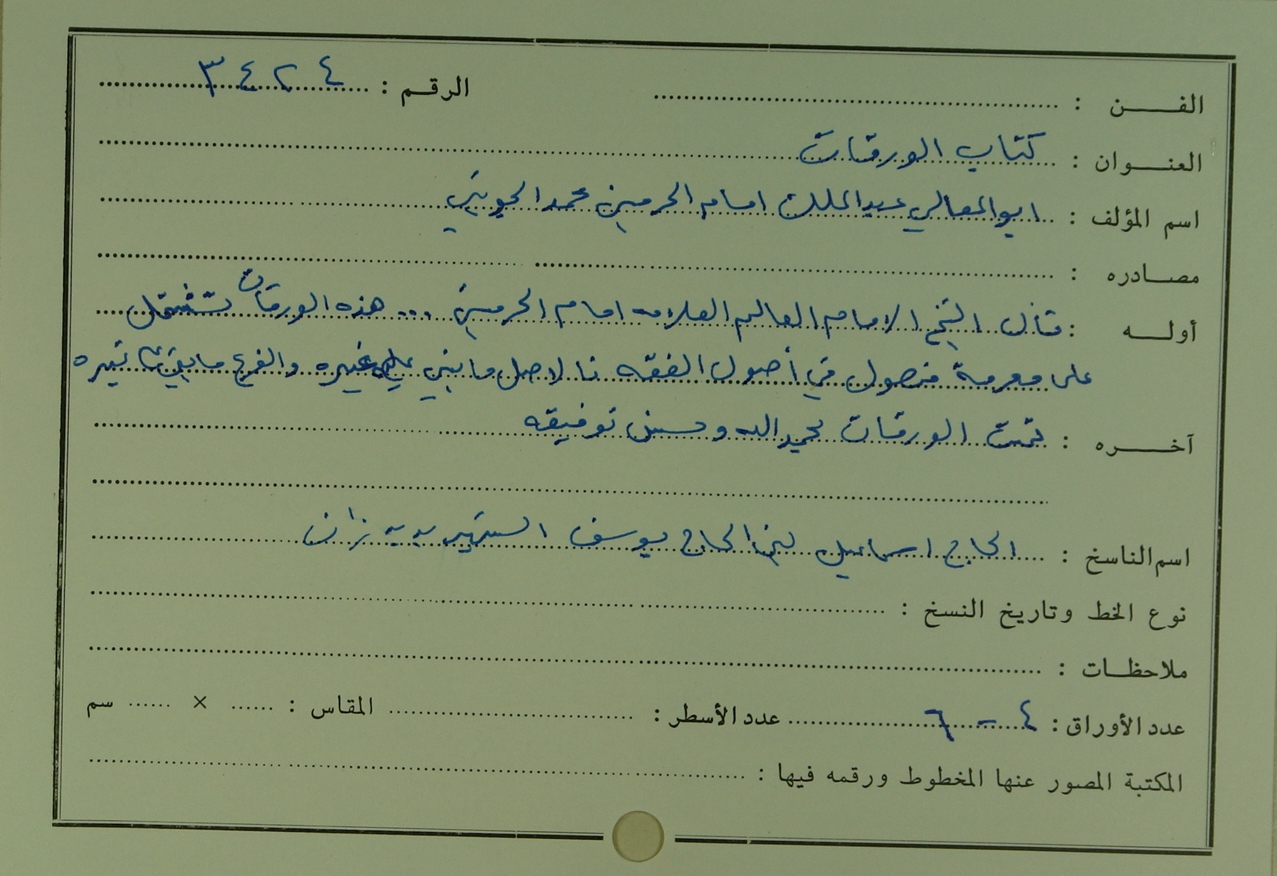 الفـــن : الرقم : ٣٤٢٤
العنوان : كتاب الورقات
اسم المؤلف : ابو المعالي عبد الملك امام الحرمين محمد الجويني
مصادره :
أوله : قال الشيخ الامام العالم العلامه امام الحرمين ... هذه الورقات تشتمل
على معرفة فصول في أصول الفقه فالاصل ما بني عليه غيره والفرع ما يبنى
آخره : تمت الورقات بحمد الله وحسن توفيقه
اسم الناسخ : الحاج اسماعيل بن الحاج يوسف الشهير
نوع الخط وتاريخ النسخ :
ملاحظات :
عدد الأوراق : ٤ - ٦ عدد الأسطر : المقاس : × سم
المكتبة المصور عنها المخطوط ورقمه فيها :